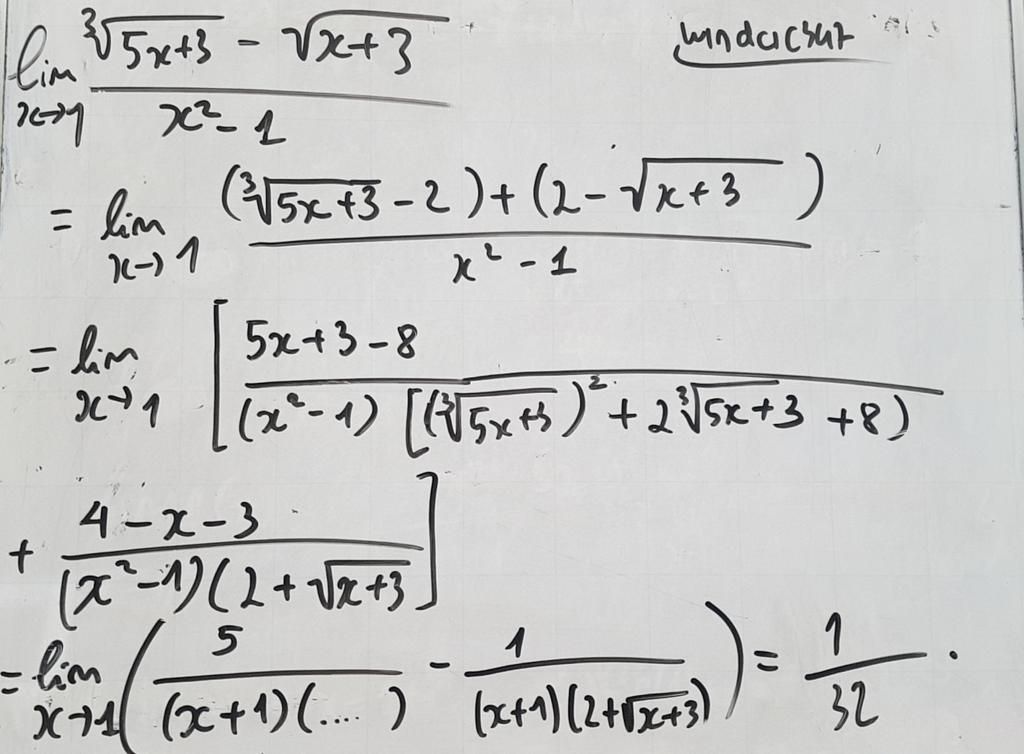 lim x→1 (∛(5x+3) - √(x+3)) / (x² - 1)
= lim x→1 ((∛(5x+3) - 2) + (2 - √(x+3))) / (x² - 1)
= lim x→1 [ (5x+3-8) / ((x²-1) [(∛(5x+3))² + 2∛(5x+3) + 8)
+ (4-x-3) / ((x²-1)(2+√(x+3) ]
= lim x→1 ( 5 / ((x+1)(....)) - 1 / ((x+1)(2+√(x+3))) ) = 1/32 .